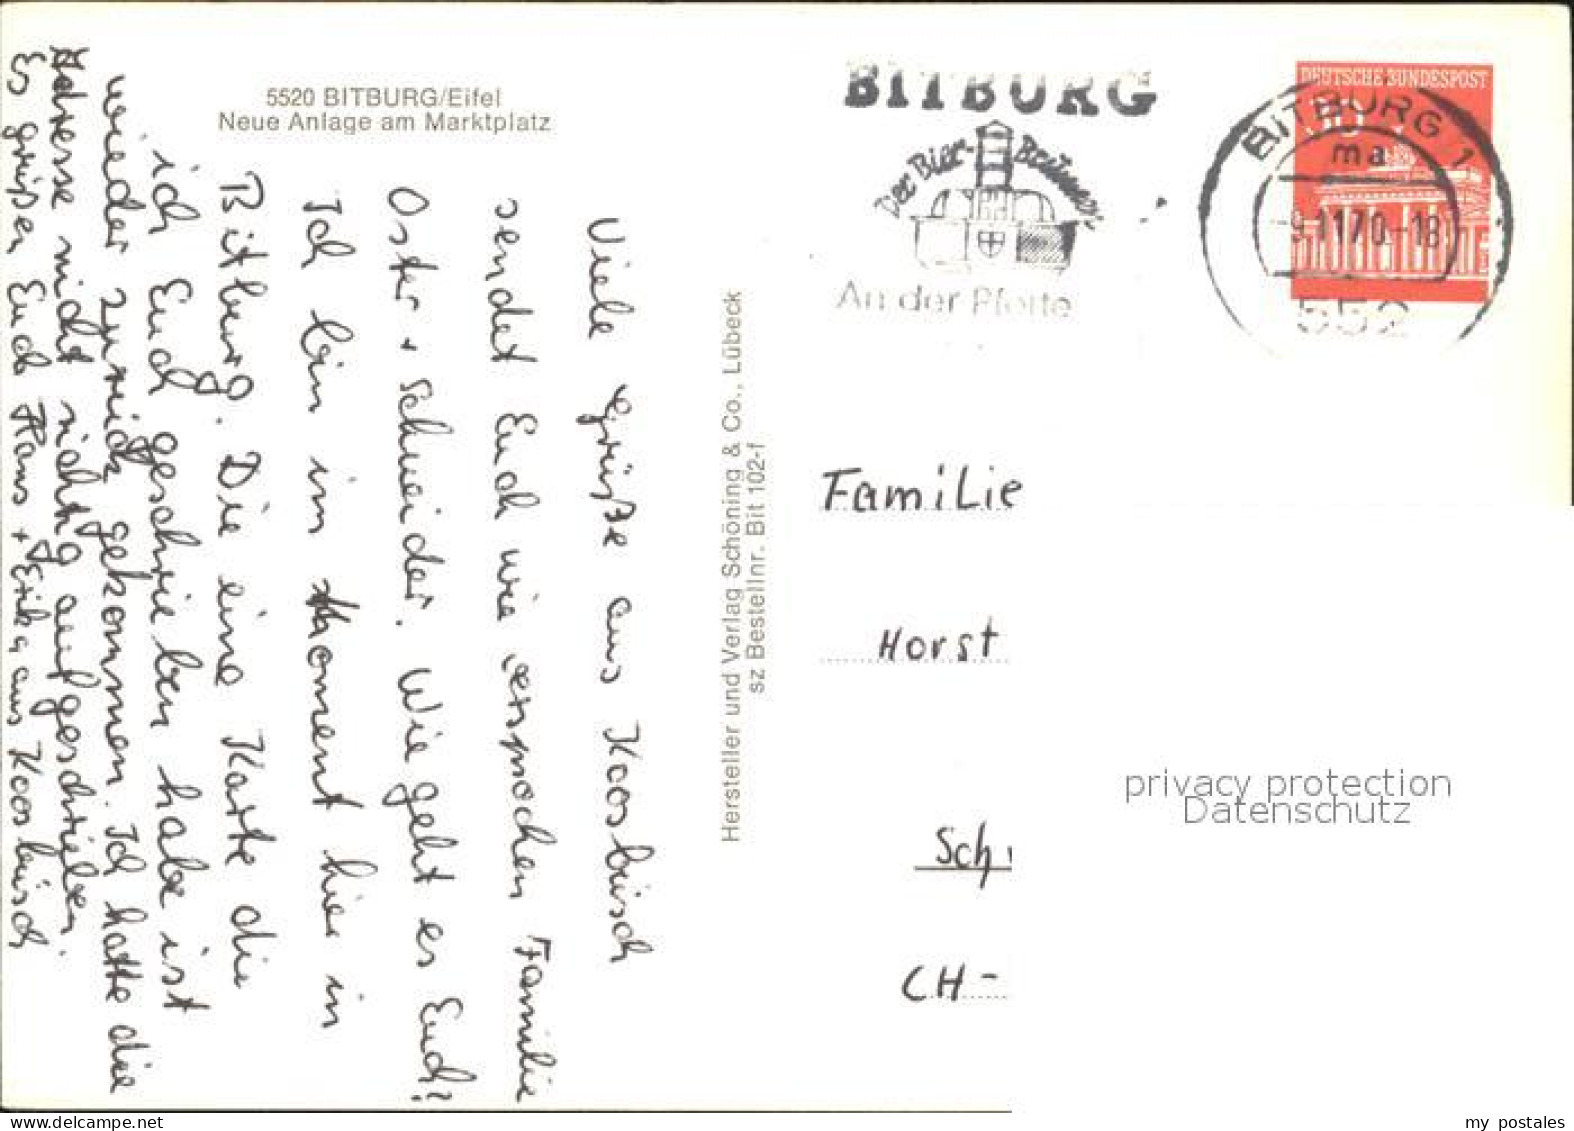 5520 BITBURG/Eifel
Neue Anlage am Marktplatz
Viele Grüße aus Koosbüsch
sendet Euch wie versprochen Familie
Oster + Schneider. Wie geht es Euch?
Ich bin im Moment hier in
Bitburg. Die eine Karte die
ich Euch geschrieben habe ist
wieder zurück gekommen. Ich hatte die
Adresse nicht richtig aufgeschrieben.
Es grüßen Euch Hans + Erika aus Koosbüsch
Hersteller und Verlag Schöning & Co., Lübeck
sz Bestellnr. Bit 102-f
BITBURG
Der Bier-Brunnen
An der Pforte
DEUTSCHE BUNDESPOST
30
BITBURG 1
ma
-9.11.70-18
552
Familie
Horst
Sch
CH-
privacy protection
Datenschutz
my postales
www.delcampe.net